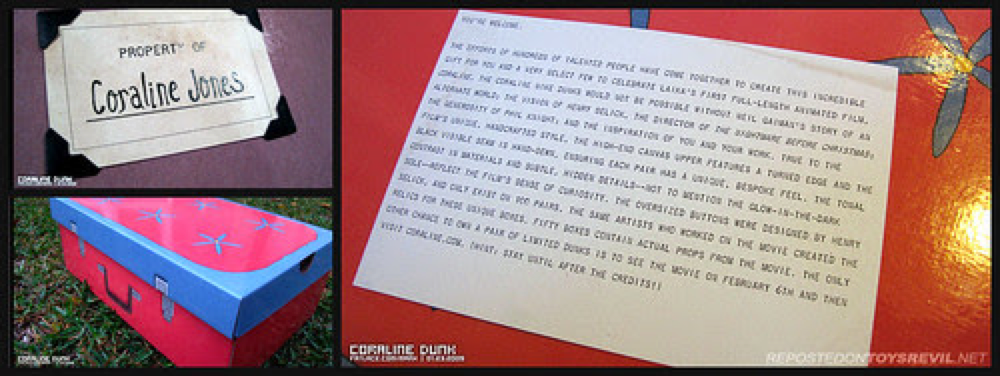 PROPERTY OF
Coraline Jones
CORALINE DUNK
CORALINE DUNK
YOU'RE WELCOME.
THE EFFORTS OF HUNDREDS OF TALENTED PEOPLE HAVE COME TOGETHER TO CREATE THIS INCREDIBLE
GIFT FOR YOU AND A VERY SELECT FEW TO CELEBRATE LAIKA'S FIRST FULL-LENGTH ANIMATED FILM,
CORALINE. THE CORALINE NIKE DUNKS WOULD NOT BE POSSIBLE WITHOUT NEIL GAIMAN'S STORY OF AN
ALTERNATE WORLD; THE VISION OF HENRY SELICK, THE DIRECTOR OF THE NIGHTMARE BEFORE CHRISTMAS;
THE GENEROSITY OF PHIL KNIGHT; AND THE INSPIRATION OF YOU AND YOUR WORK. TRUE TO THE
FILM'S UNIQUE, HANDCRAFTED STYLE, THE HIGH-END CANVAS UPPER FEATURES A TURNED EDGE AND THE
BLACK VISIBLE SEWN IS HAND-SEWN, ENSURING EACH PAIR HAS A UNIQUE, BESPOKE FEEL. THE TONAL
CONTRAST IN MATERIALS AND SUBTLE, HIDDEN DETAILS—NOT TO MENTION THE GLOW-IN-THE-DARK
SOLE—REFLECT THE FILM'S SENSE OF CURIOSITY. THE OVERSIZED BUTTONS WERE DESIGNED BY HENRY
SELICK, AND ONLY EXIST ON 1000 PAIRS. THE SAME ARTISTS WHO WORKED ON THE MOVIE CREATED THE
RELICS FOR THESE UNIQUE BOXES. FIFTY BOXES CONTAIN ACTUAL PROPS FROM THE MOVIE. THE ONLY
OTHER CHANCE TO OWN A PAIR OF LIMITED DUNKS IS TO SEE THE MOVIE ON FEBRUARY 6TH AND THEN
VISIT CORALINE.COM. (HINT: STAY UNTIL AFTER THE CREDITS!)
CORALINE DUNK
REPOSTEDONTOYSREVIL.NET